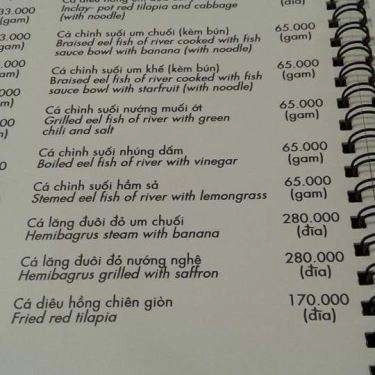 33.000
Inclay- pot red tilapia and cabbage
(gam)
(with noodle)
(dĩa)
Cá chình suối um chuối (kèm bún) 65.000
Braised eel fish of river cooked with fish (gam)
sauce bowl with banana (with noodle)
Cá chình suối um khế (kèm bún) 65.000
Braised eel fish of river cooked with fish (gam)
sauce bowl with starfruit (with noodle)
Cá chình suối nướng muối ớt 65.000
Grilled eel fish of river with green (gam)
chili and salt
Cá chình suối nhúng dấm 65.000
Boiled eel fish of river with vinegar (gam)
Cá chình suối hầm sả 65.000
Stemed eel fish of river with lemongrass (gam)
Cá lăng đuôi đỏ um chuối 280.000
Hemibagrus steam with banana (đĩa)
Cá lăng đuôi đỏ nướng nghệ 280.000
Hemibagrus grilled with saffron (đĩa)
Cá diêu hồng chiên giòn 170.000
Fried red tilapia (đĩa)